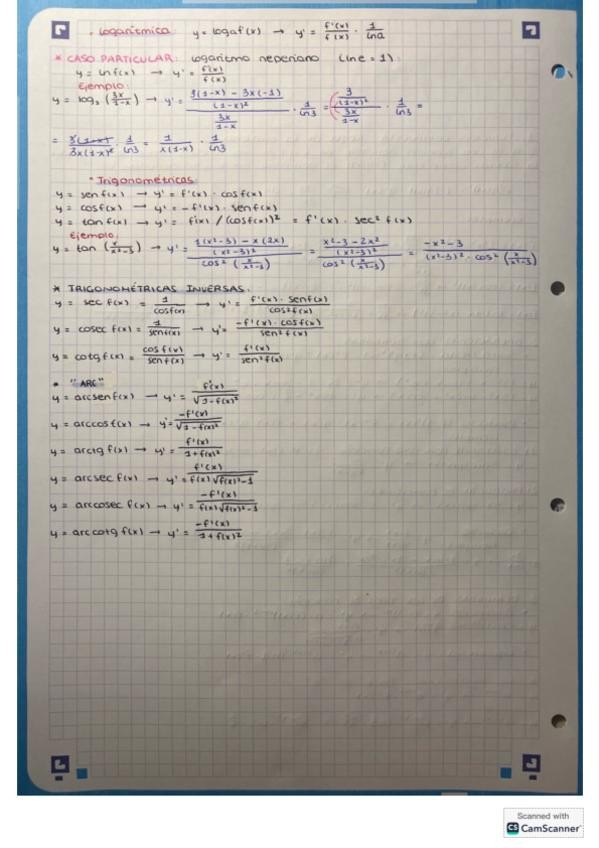 • Logarítmica: y = logₐ f(x) → y' = f'(x)/f(x) · 1/lna
* CASO PARTICULAR: Logaritmo neperiano (ln e = 1):
y = ln f(x) → y' = f'(x)/f(x)
Ejemplo:
y = log₃ (3x/1-x) → y' = ((3(1-x) - 3x(-1))/(1-x)²)/(3x/1-x) · 1/ln3 = (3/(1-x)²)/(3x/1-x) · 1/ln3 =
= 3(1-x)/3x(1-x)² · 1/ln3 = 1/x(1-x) · 1/ln3
• Trigonométricas:
y = sen f(x) → y' = f'(x) · cos f(x)
y = cos f(x) → y' = -f'(x) · sen f(x)
y = tan f(x) → y' = f(x) / (cos f(x))² = f'(x) · sec² f(x)
Ejemplo:
y = tan (x/x²-3) → y' = ((1(x²-3) - x(2x))/(x²-3)²)/cos² (x/x²-3) = ((x²-3-2x²)/(x²-3)²)/cos² (x/x²-3) = (-x²-3)/((x²-3)² · cos² (x/x²-3))
* TRIGONOMÉTRICAS INVERSAS:
y = sec f(x) = 1/cos f(x) → y' = f'(x) · sen f(x)/cos² f(x)
y = cosec f(x) = 1/sen f(x) → y' = -f'(x) · cos f(x)/sen² f(x)
y = cotg f(x) = cos f(x)/sen f(x) → y' = f'(x)/sen² f(x)
* "ARC"
y = arcsen f(x) → y' = f'(x)/√(1-f(x)²)
y = arccos f(x) → y' = -f'(x)/√(1-f(x)²)
y = arctg f(x) → y' = f'(x)/1+f(x)²
y = arcsec f(x) → y' = f'(x)/f(x)√(f(x)²-1)
y = arccosec f(x) → y' = -f'(x)/f(x)√(f(x)²-1)
y = arccotg f(x) → y' = -f'(x)/1+f(x)²
Scanned with
CS CamScanner